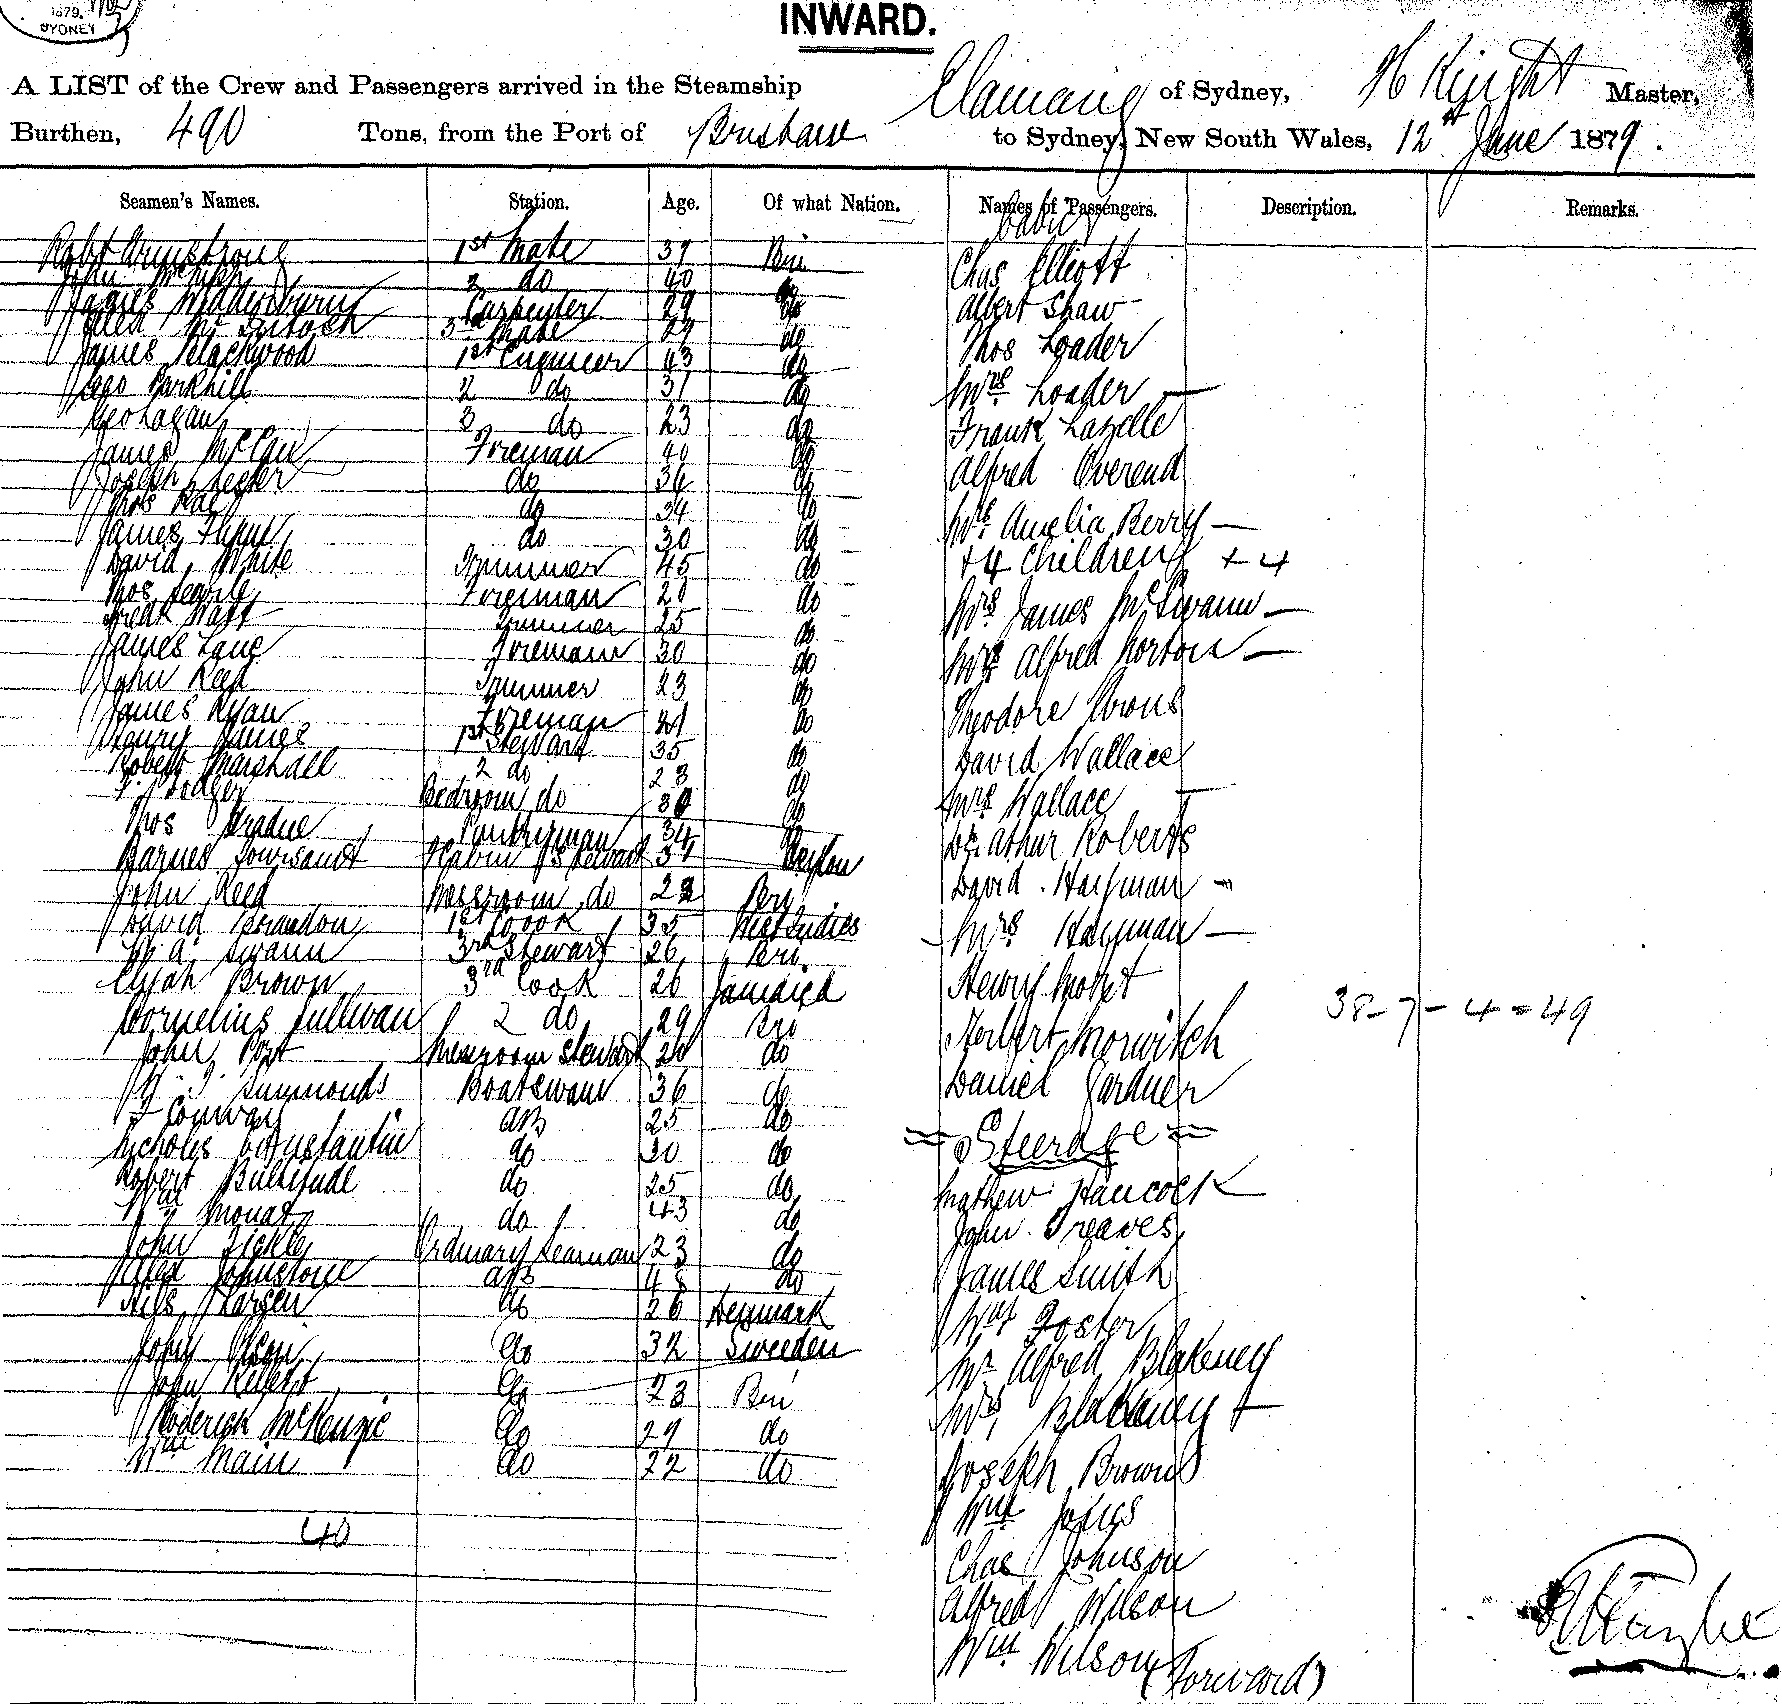 1879.
SYDNEY
INWARD.
A LIST of the Crew and Passengers arrived in the Steamship Elamang of Sydney, H Knight Master,
Burthen, 490 Tons, from the Port of Brisbane to Sydney, New South Wales, 12th June 1879.
Seamen's Names. Station. Age. Of what Nation. Names of Passengers. Description. Remarks.
Cabin
Robt Armstrong 1st Mate 37 Bri Chas Elliott
John 2 do 40 do Albert Shaw
James Wedderburn Carpenter 29 do Thos Loader
Alex McIntosh 3rd Mate 27 do Mrs Loader —
James Blackwood 1st Engineer 43 do Frank Lazelle
Geo Parkhill 2 do 31 do Alfred Overend
Geo Lagan 3 do 23 do Mrs Amelia Berry —
James Foreman 40 do + 4 Children + 4
Joseph do 36 do Mrs James McSwann —
Thos Rae do 34 do Mrs Alfred Norton —
James Flynn do 30 do Theodore
David White Trimmer 45 do David Wallace
Thos Searle Foreman 20 do Mrs Wallace —
Fredk Watt Trimmer 25 do Dr. Arthur Roberts
James Lane Foreman 30 do David Hayman
John Reed Trimmer 23 do Mrs Hayman —
James Ryan Foreman 21 do Henry Mort
Henry James 1st Stewart 35 do Herbert Norwitch
Robert Marshall 2 do 23 do Daniel Gardner
F. Dodger Bedroom do 30 do = Steerage =
Thos Pantryman 34 do Mathew Hancock
Barnes Cabin Stewart 34 Ceylon John Greaves
John Reed Messroom do 22 Bri James Smith
David Brandon 1st Cook 35 West Indies Wm Foster
W. A. Swann 3rd Stewart 26 Bri Mr Alfred Blakeney
Elijah Brown 3rd Cook 26 Jamaica Mrs Blakeney —
Cornelius Sullivan 2 do 29 Bri Joseph Brown
John Port Messroom Stewart 20 do Wm Jones
Simmonds Boatswain 36 do Chas Johnson
F Conway AB 25 do Alfred Wilson
Nicholas Constantin do 30 do Wm Wilson (Forward)
Robert Bultitude do 25 do
Wm Mouat do 43 do
John Tickle Ordinary Seaman 23 do
Alex Johnstone AB 48 do
Nils Larsen do 26 Denmark
John Olson do 32 Sweeden
John do 23 Bri
Roderick McKenzie do 29 do
Wm Main do 22 do
40
38 - 7 - 4 = 49
H Knight